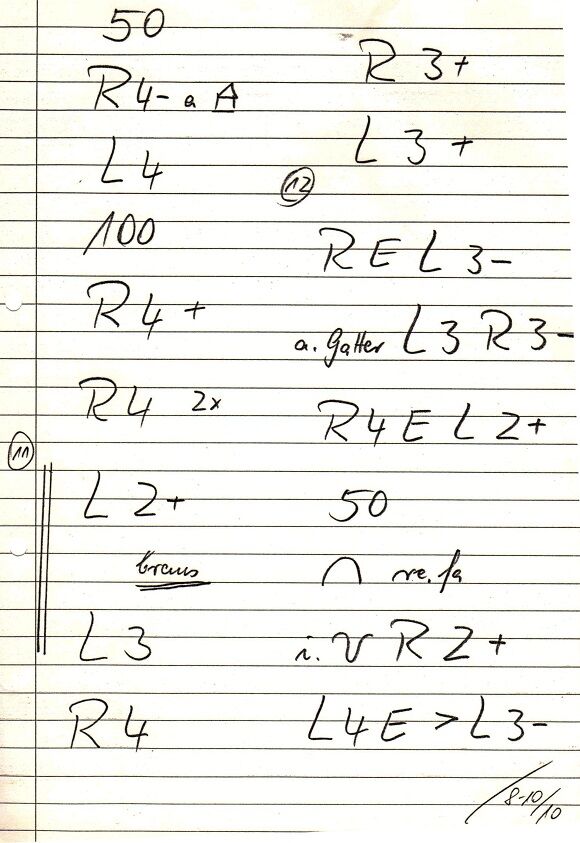 50
R4- a A
L4
100
R4+
R4 2x
11
L2+
brems
L3
R4
R3+
L3+
12
R E L 3-
a. Gatter L3 R3-
R4 E L2+
50
∩ re. fa
i. V R2+
L4E > L3-
8-10/10